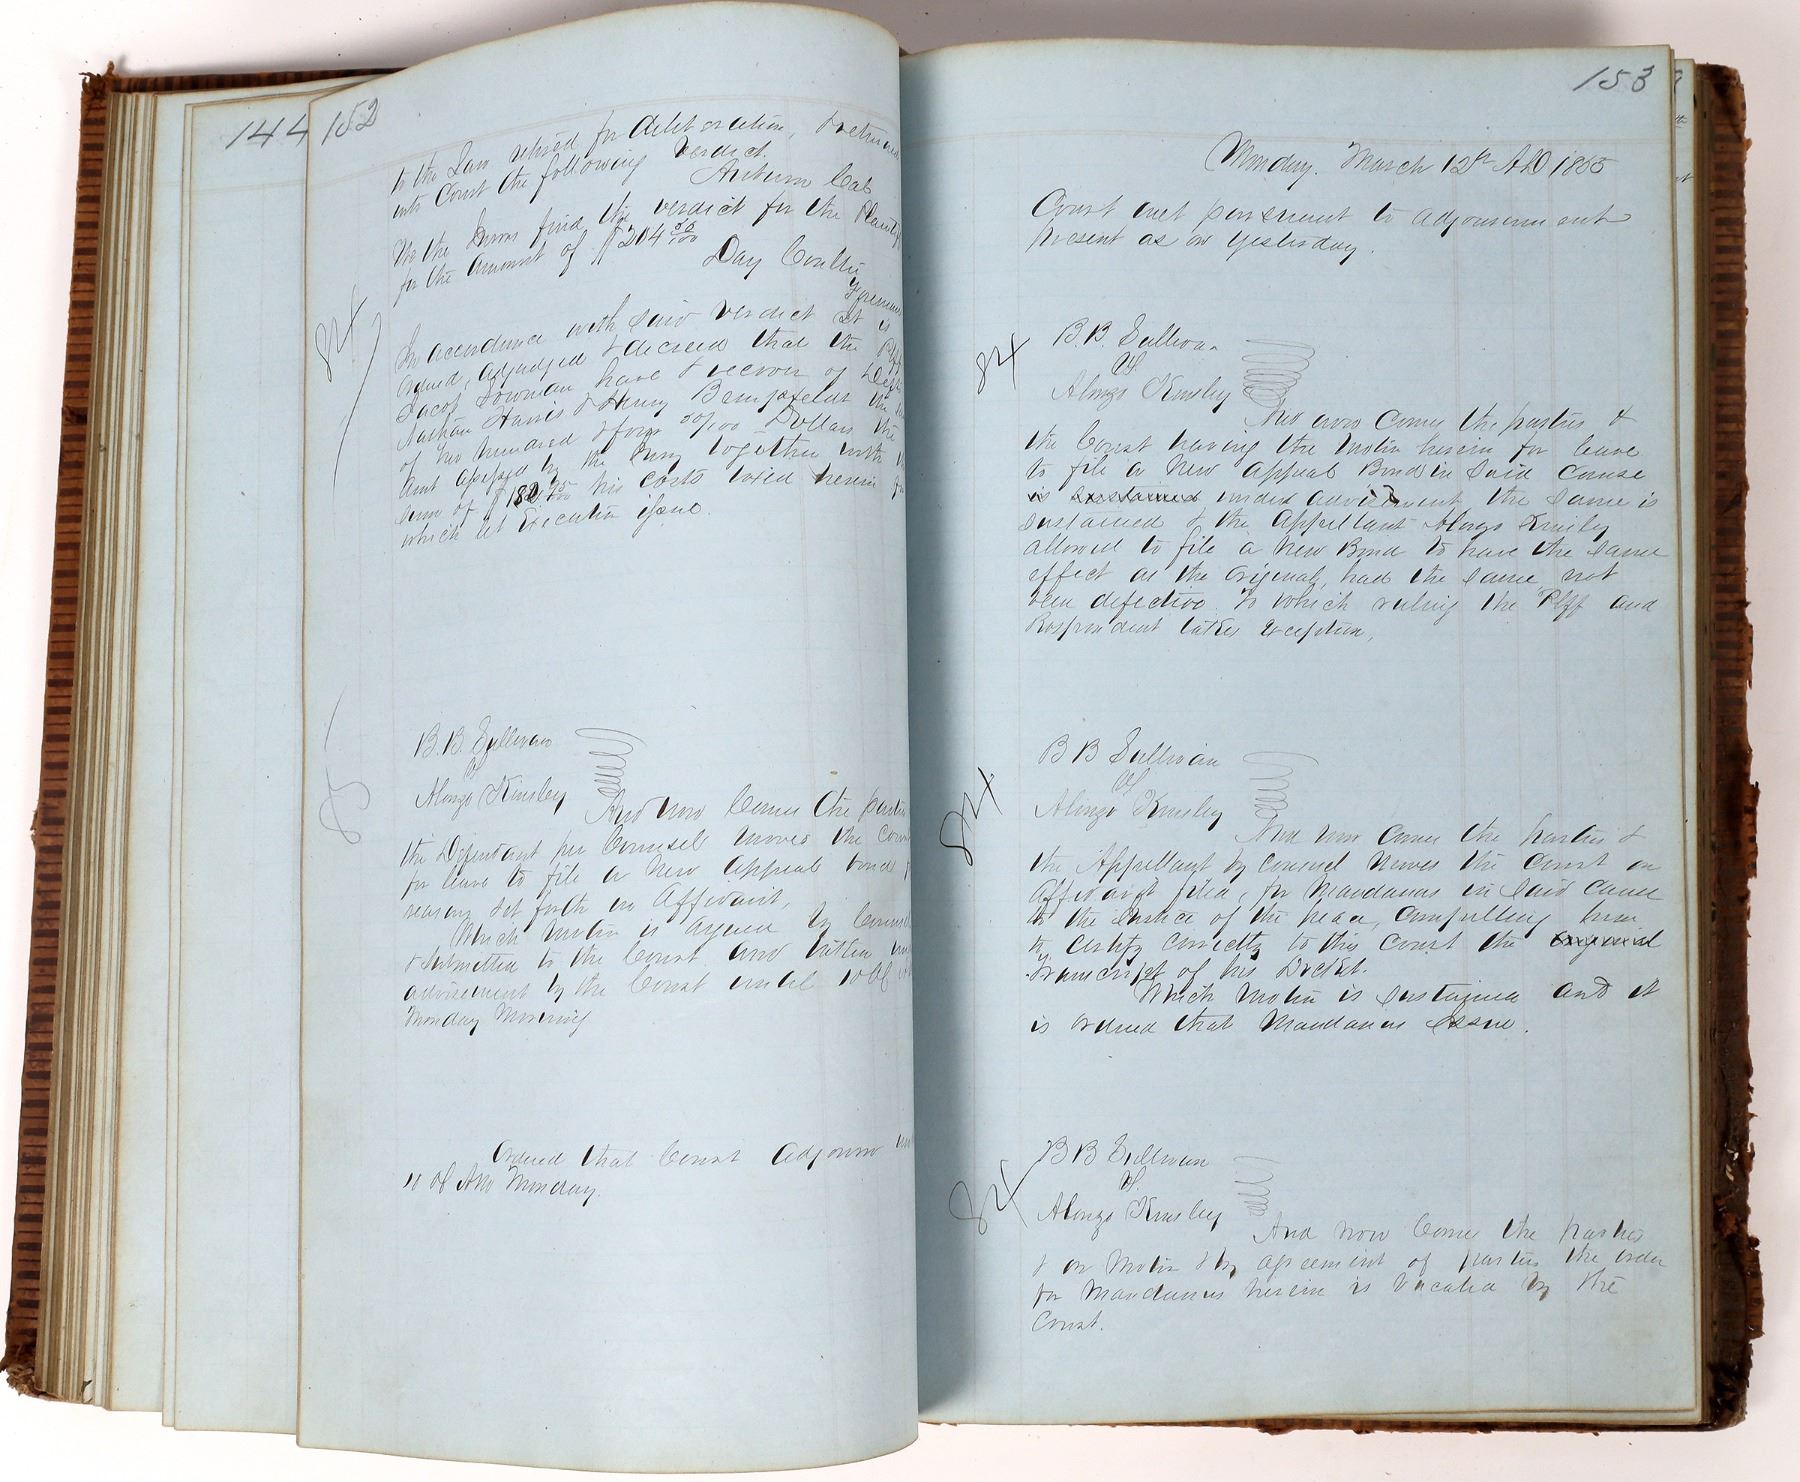 144
152
to the Law retired for deliberation, & returned
into Court the following Verdict.
We the Jurors find the verdict for the Plaintiff
for the Amount of $204 50/100
Day
Foreman
84
In accordance with said verdict it is
ordered, adjudged & decreed that the Plff
Jacob have & recover of Defts
Nathan Harris & Henry the
of two hundred & four 50/100 Dollars the
Amt assessed by the Jury together with
sum of $ his costs taxed herein for
which let Execution issue.
85
B. B. Sullivan
vs
Alonzo Kinsley
And now Comes the parties
the Defendant per Counsel moves the Court
for leave to file a New Appeal bond
reasons set forth in Affidavit,
Which Motion is argued by Counsel
& Submitted to the Court and taken under
advisement by the Court until 10 Ocl
Monday Morning
Ordered that Court Adjourn
10 Ocl AM Monday.
153
Monday, March 12th AD 1855
Court met persuent to adjournment
Present as on Yesterday.
84
B. B. Sullivan
vs.
Alonzo Kinsley
And now comes the parties &
the Court having the Motion herein for leave
to file a New Appeal Bond in said Cause
is sustained under advisement the same is
sustained & the Appellant Alonzo Kinsley
allowed to file a New Bond to have the same
effect as the original, had the same not
been defective. To which ruling the Plff and
Respondent takes exception,
84
B B Sullivan
vs
Alonzo Kinsley
And now comes the parties &
the Appellant by counsel moves the court on
Affidavit filed, for Mandamus in said cause
to the Justice of the peace, compelling him
to certify correctly to this Court the original
transcript of his Docket.
Which Motion is sustained and it
is ordered that Mandamus issue.
84
B B Sullivan
vs.
Alonzo Kinsley
And now Comes the parties
& on Motion & by agreement of parties the order
for Mandamus herein is vacated by the
Court.